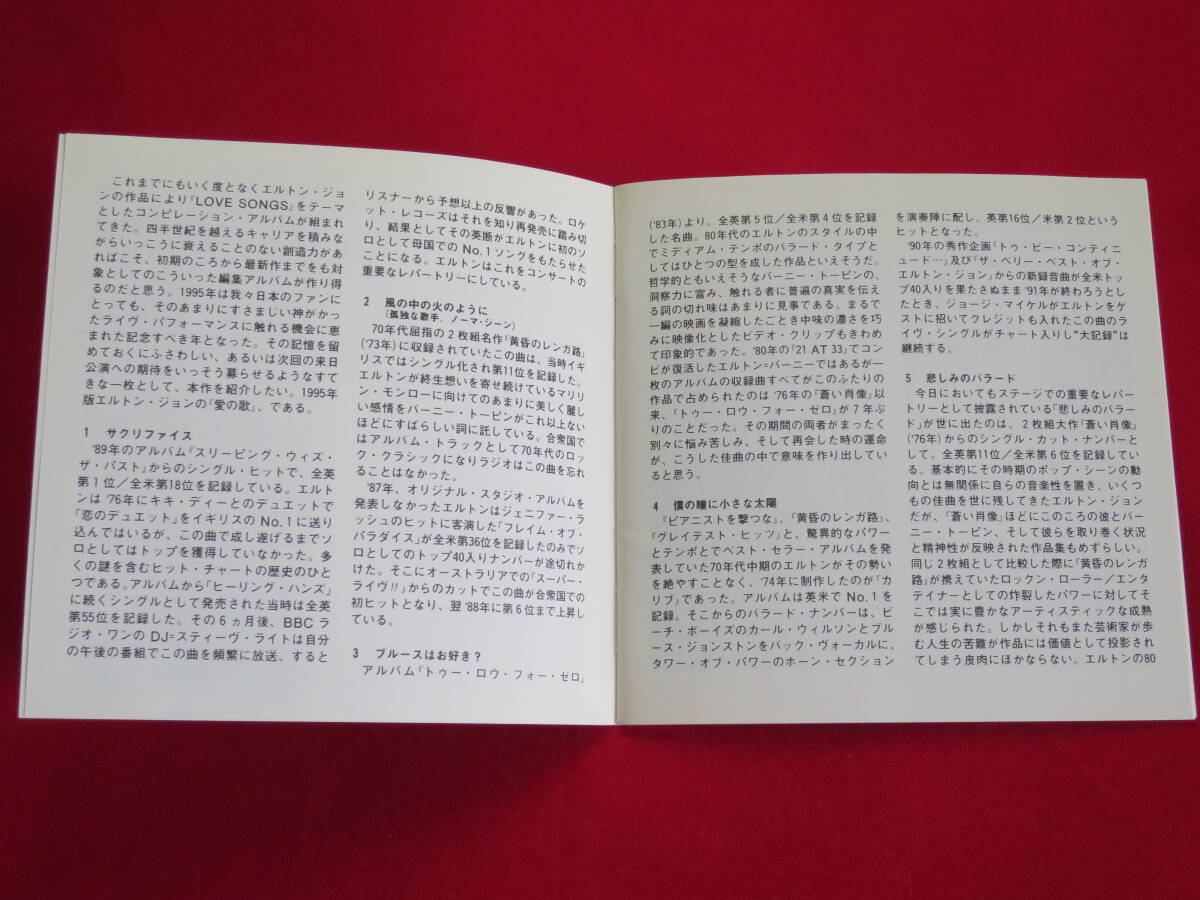 これまでにもいく度となくエルトン・ジョ
ンの作品により『LOVE SONGS』をテーマ
としたコンピレーション・アルバムが組まれ
てきた。四半世紀を越えるキャリアを積みな
がらいっこうに衰えることのない創造力があ
ればこそ、初期のころから最新作までをも対
象としてのこういった編集アルバムが作り得
るのだと思う。1995年は我々日本のファンに
とっても、そのあまりにすさまじい神がかっ
たライヴ・パフォーマンスに触れる機会に恵
まれた記念すべき年となった。その記憶を留
めておくにふさわしい、あるいは次回の来日
公演への期待をいっそう募らせるようなすて
きな一枚として、本作を紹介したい。1995年
版エルトン・ジョンの「愛の歌」、である。
1 サクリファイス
'89年のアルバム『スリーピング・ウィズ・
ザ・パスト』からのシングル・ヒットで、全英
第1位／全米第18位を記録している。エルト
ンは'76年にキキ・ディーとのデュエットで
「恋のデュエット」をイギリスの No.1に送り
込んではいるが、この曲で成し遂げるまでソ
ロとしてはトップを獲得していなかった。多
くの謎を含むヒット・チャートの歴史のひと
つである。アルバムから「ヒーリング・ハンズ」
に続くシングルとして発売された当時は全英
第55位を記録した。その6ヵ月後、BBCラ
ジオ・ワンの DJ=スティーヴ・ライトは自分
の午後の番組でこの曲を頻繁に放送、すると
リスナーから予想以上の反響があった。ロケ
ット・レコーズはそれを知り再発売に踏み切
り、結果としてその英断がエルトンに初のソ
ロとして母国での No.1ソングをもたらせた
ことになる。エルトンはこれをコンサートの
重要なレパートリーにしている。
2 風の中の火のように
(孤独な歌手、ノーマ・ジーン)
70年代屈指の2枚組名作『黄昏のレンガ路』
('73年)に収録されていたこの曲は、当時イギ
リスではシングル化され第11位を記録した。
エルトンが終生想いを寄せ続けているマリリ
ン・モンローに向けてのあまりに美しく麗し
い感情をバーニー・トーピンがこれ以上ない
ほどにすばらしい詞に託している。合衆国で
はアルバム・トラックとして70年代のロッ
ク・クラシックになりラジオはこの曲を忘れ
ることはなかった。
'87年、オリジナル・スタジオ・アルバムを
発表しなかったエルトンはジェニファー・ラ
ッシュのヒットに客演した「フレイム・オブ・
パラダイス」が全米第36位を記録したのみでソ
ロとしてのトップ40入りナンバーが途切れか
けた。そこにオーストラリアでの『スーパー・
ライヴ!!』からのカットでこの曲が合衆国での
初ヒットとなり、翌'88年に第6位まで上昇し
ている。
3 ブルースはお好き？
アルバム『トゥー・ロウ・フォー・ゼロ』
('83年)より。全英第5位／全米第4位を記録
した名曲。80年代のエルトンのスタイルの中
でミディアム・テンポのバラード・タイプと
してはひとつの型を成した作品といえそうだ。
哲学的ともいえそうなバーニー・トーピンの、
洞察力に富み、触れる者に普遍の真実を伝え
る詞の切れ味はあまりに見事である。まるで
一編の映画を凝縮したごとき中味の濃さを巧
みに映像化したビデオ・クリップもきわめ
て印象的であった。'80年の『21 AT 33』でコン
ビが復活したエルトン=バーニーではあるが一
枚のアルバムの収録曲すべてがこのふたりの
作品で占められたのは'76年の『蒼い肖像』以
来、『トゥー・ロウ・フォー・ゼロ』が7年ぶ
りのことだった。その期間の両者がまったく
別々に悩み苦しみ、そして再会した時の運命
が、こうした佳曲の中で意味を作り出してい
ると思う。
4 僕の瞳に小さな太陽
『ピアニストを撃つな』、『黄昏のレンガ路』、
『グレイテスト・ヒッツ』と、驚異的なパワー
とテンポとでベスト・セラー・アルバムを発
表していた70年代中期のエルトンがその勢い
を絶やすことなく、'74年に制作したのが『カ
リブ』であった。アルバムは英米で No.1を
記録。そこからのバラード・ナンバーは、ビ
ーチ・ボーイズのカール・ウィルソンとブル
ース・ジョンストンをバック・ヴォーカルに、
タワー・オブ・パワーのホーン・セクション
を演奏陣に配し、英第16位／米第2位という
ヒットとなった。
'90年の秀作企画『トゥ・ビー・コンティニ
ュード…』及び『ザ・ベリー・ベスト・オブ・
エルトン・ジョン』からの新録音曲が全米トッ
プ40入りを果たさぬまま'91年が終わろうとし
たとき、ジョージ・マイケルがエルトンをゲ
ストに招いてクレジットも入れたこの曲のラ
イヴ・シングルがチャート入りし"大記録"は
継続する。
5 悲しみのバラード
今日においてもステージでの重要なレパー
トリーとして披露されている「悲しみのバラー
ド」が世に出たのは、2枚組大作『蒼い肖像』
('76年)からのシングル・カット・ナンバーと
して。全英第11位／全米第6位を記録してい
る。基本的にその時期のポップ・シーンの動
向とは無関係に自らの音楽性を置き、いくつ
もの佳曲を世に残してきたエルトン・ジョン
だが、『蒼い肖像』ほどにこのころの彼とバー
ニー・トーピン、そして彼らを取り巻く状況
と精神性が反映された作品集もめずらしい。
同じ2枚組として比較した際に『黄昏のレンガ
路』が携えていたロックン・ローラー／エンタ
テイナーとしての炸裂したパワーに対してそ
こでは実に豊かなアーティスティックな成熟
が感じられた。しかしそれもまた芸術家が歩
む人生の苦難が作品には価値として投影され
てしまう皮肉にほかならない。エルトンの80